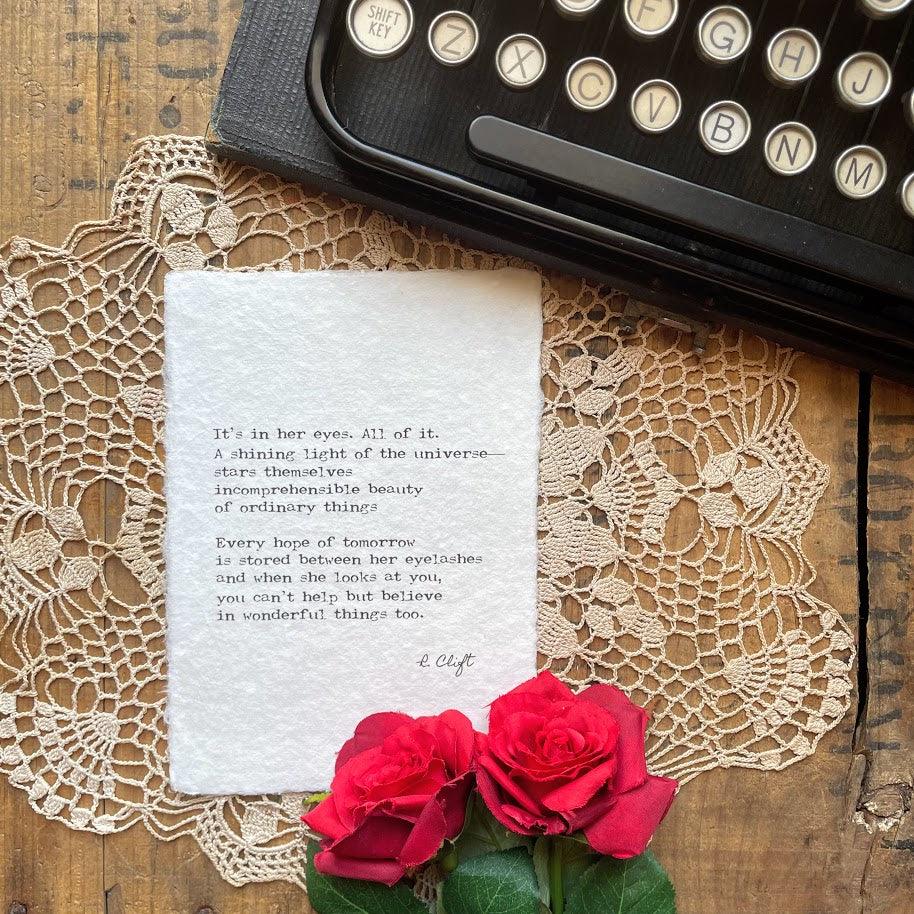 SHIFT
KEY
F G H J
Z X C V B N M
It's in her eyes. All of it.
A shining light of the universe—
stars themselves
incomprehensible beauty
of ordinary things
Every hope of tomorrow
is stored between her eyelashes
and when she looks at you,
you can't help but believe
in wonderful things too.
R. Clift